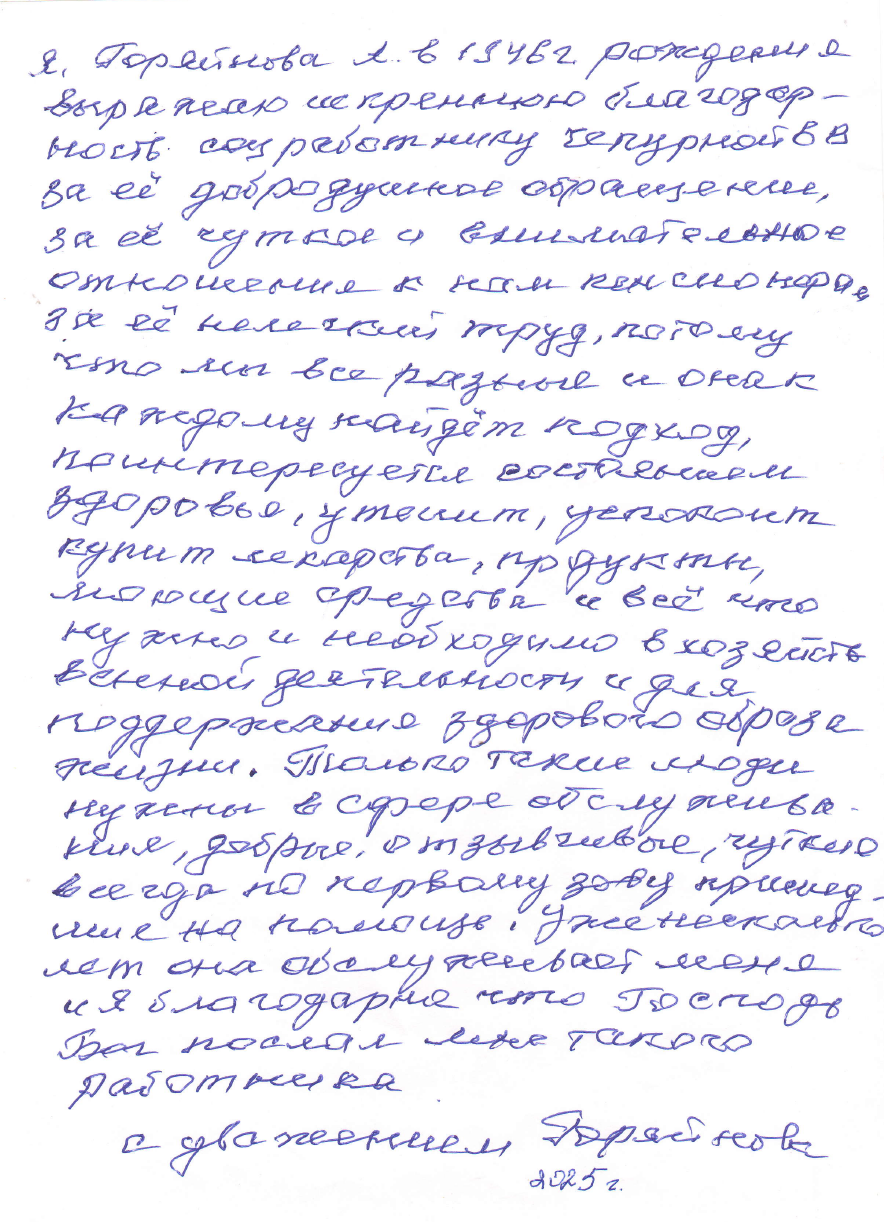 Я, Горяйнова Л. в 1946 г рождения
выражаю искреннюю благодар-
ность соц работнику Чепурной В В
за её добродушное обращение,
за её чуткое и внимательное
отношение к нам пенсионерам
за её нелегкий труд, потому
что мы все разные и она к
каждому найдёт подход,
поинтересуется состоянием
здоровья, утешит, успокоит
купит лекарства, продукты,
моющие средства и всё что
нужно и необходимо в хозяйств
венной деятельности и для
поддержания здорового образа
жизни. Только такие люди
нужны в сфере обслужива-
ния, добрые, отзывчивые, чуткие
всегда по первому зову пришед-
шие на помощь. Уже несколько
лет она обслуживает меня
и я благодарна что Господь
Бог послал мне такого
работника
с уважением Горяйнова
2025 г.